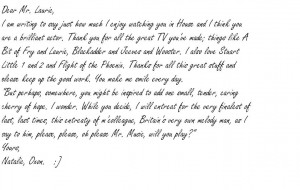 Dear Mr. Laurie,
I am writing to say just how much I enjoy watching you in House and I think you
are a brilliant actor. Thank you for all the great TV you've made; things like A
Bit of Fry and Laurie, Blackadder and Jeeves and Wooster. I also love Stuart
Little 1 and 2 and Flight of the Phoenix. Thanks for all this great stuff and
please keep up the good work. You make me smile every day.
"But perhaps, somewhere, you might be inspired to add one small, tender, caring
cherry of hope, I wonder. While you decide, I will entreat for the very finalest of
last, last times, this entreaty of m'colleague, Britain's very own melody man, as I
say to him, please, please, oh please Mr. Music, will you play?"
Yours,
Natalie, Oxon. :]